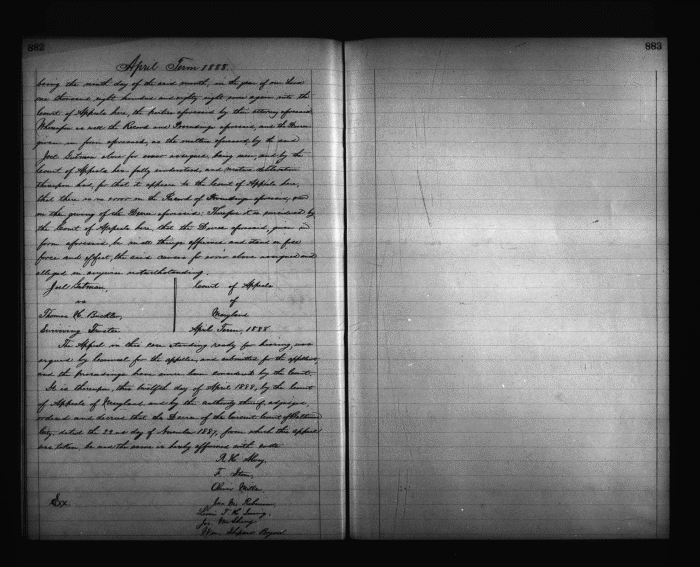 882
883
April Term 1888.
being the ninth day of the said month, in the year of our Lord
one thousand eight hundred and eighty eight come again into the
Court of Appeals here, the parties aforesaid by their attorneys aforesaid.
Whereupon as well the Record and Proceedings aforesaid, and the Decree
given in form aforesaid, as the matters aforesaid, by the said
Joel Gutman above for error assigned, being seen, and by the
Court of Appeals here fully understood, and mature deliberation
thereupon had, for that it appears to the Court of Appeals here,
that there is no error in the Record of Proceedings aforesaid, or
in the giving of the Decree aforesaid: Therefore it is considered by
the Court of Appeals here, that the Decree aforesaid, given in
form aforesaid, be in all things affirmed, and stand in full
force and effect, the said causes for error above assigned and
alleged in anywise notwithstanding.
Joel Gutman,
vs
Thomas H. Buckler,
Surviving Trustee
Court of Appeals
of
Maryland
April Term, 1888.
The Appeal in this case standing ready for hearing, was
argued by Counsel for the appellee, and submitted for the appellant,
and the proceedings have since been considered by the Court.
It is thereupon, this twelfth day of April 1888, by the Court
of Appeals of Maryland and by the authority thereof, adjudged,
ordered and decreed that the Decree of the Circuit Court of Baltimore
City, dated the 22nd day of November 1887, from which this appeal
was taken, be and the same is hereby affirmed with costs
R. H. Alvey,
Oliver Miller
Jno. M. Robinson,
Levin T. H. Irving,
Wm. Shepard Bryan
Exx